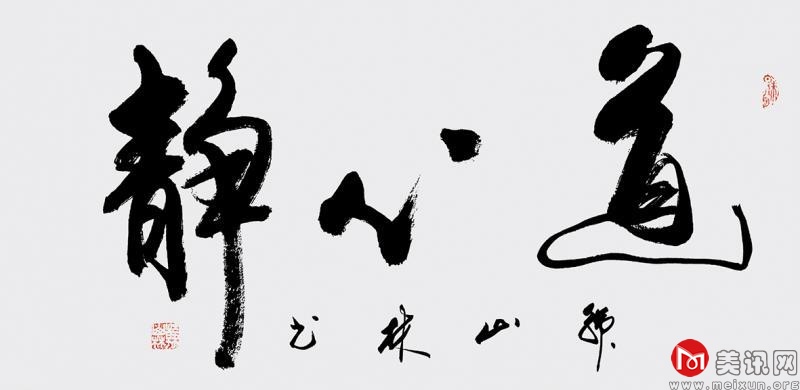 道心静
山林书
美讯网
www.meixun.org